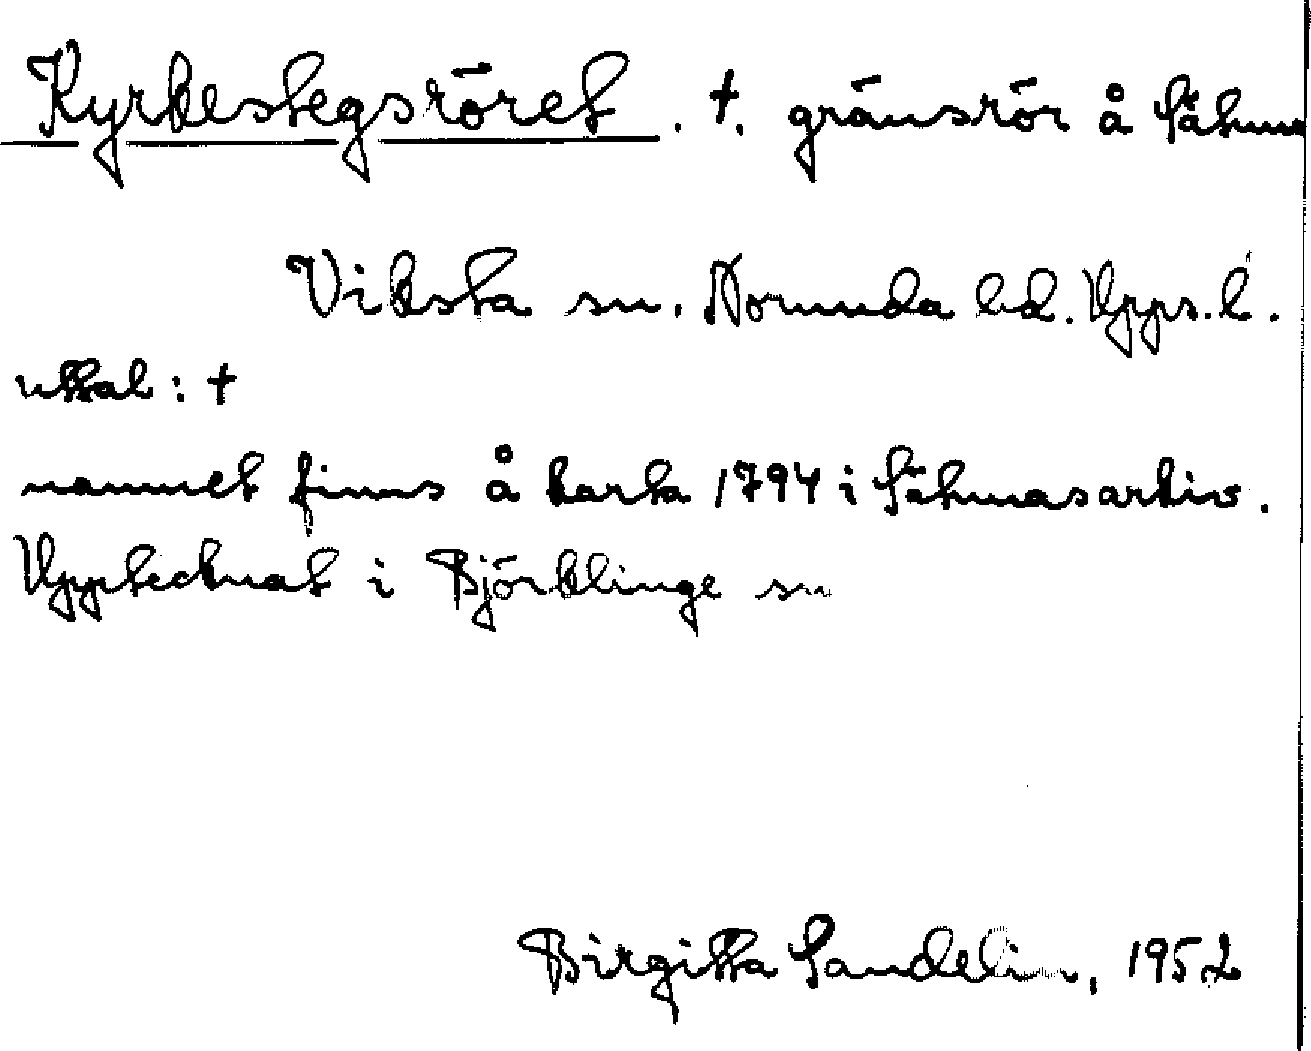 Kyrkestegsröret. †. gränsrör å Såhma
Viksta sn. Norunda hd. Upps. l.
uttal: †
namnet finns å karta 1794 i Såhmasarkiv.
Upptecknat i Björklinge sn
Birgitta Sandelin, 1952